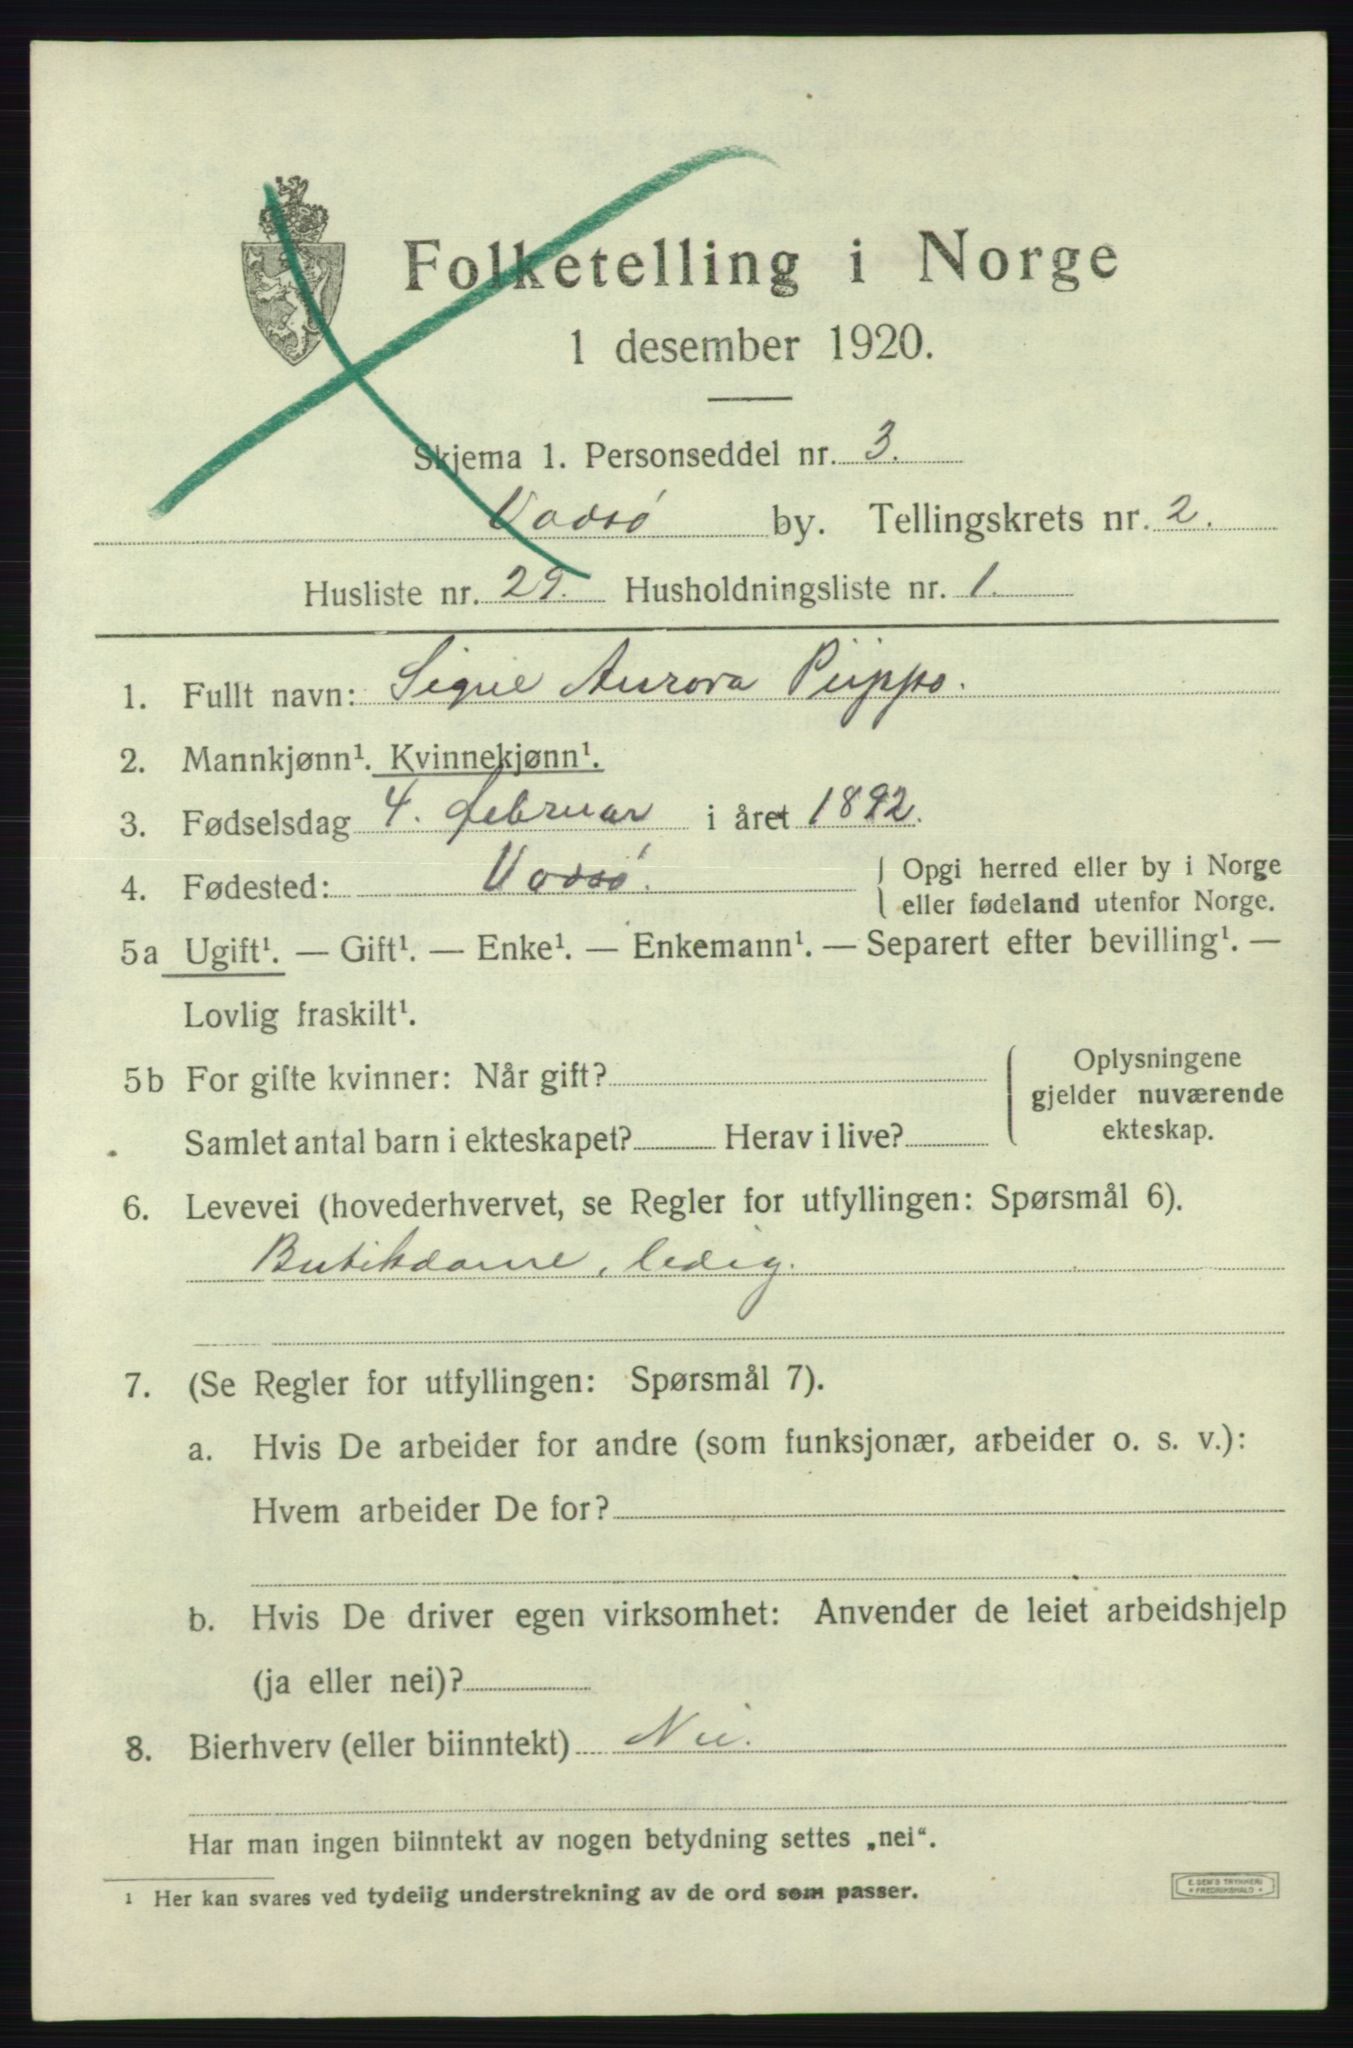 Folketelling i Norge
1 desember 1920.
Skjema 1. Personseddel nr. 3.
Vadsø by. Tellingskrets nr. 2.
Husliste nr. 29. Husholdningsliste nr. 1.
1. Fullt navn: Signe Aurora Piippo.
2. Mannkjønn¹. Kvinnekjønn¹.
3. Fødselsdag 4. februar i året 1892.
4. Fødested: Vadsø. Opgi herred eller by i Norge
eller fødeland utenfor Norge.
5a Ugift¹. — Gift¹. — Enke¹. — Enkemann¹. — Separert efter bevilling¹. —
Lovlig fraskilt¹.
5b For gifte kvinner: Når gift? Oplysningene
gjelder nuværende
Samlet antal barn i ekteskapet? Herav i live? ekteskap.
6. Levevei (hovederhvervet, se Regler for utfyllingen: Spørsmål 6).
Butikdame, ledig.
7. (Se Regler for utfyllingen: Spørsmål 7).
a. Hvis De arbeider for andre (som funksjonær, arbeider o. s. v.):
Hvem arbeider De for?
b. Hvis De driver egen virksomhet: Anvender de leiet arbeidshjelp
(ja eller nei)?
8. Bierhverv (eller biinntekt) Nei.
Har man ingen biinntekt av nogen betydning settes „nei“.
¹ Her kan svares ved tydelig understrekning av de ord som passer.
E. SEM'S TRYKKERI
• FREDRIKSHALD •